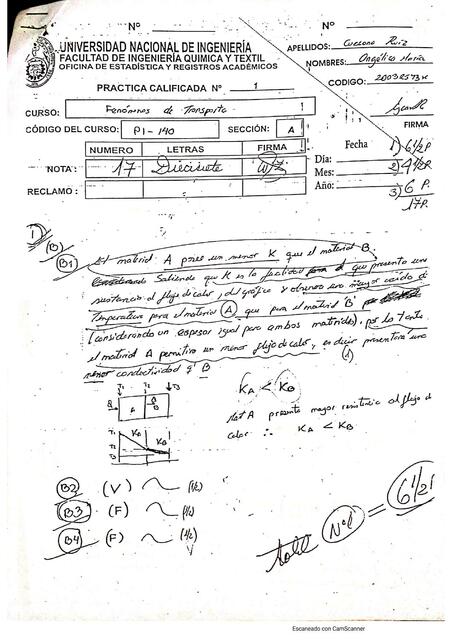 Nº
Nº
UNIVERSIDAD NACIONAL DE INGENIERÍA
FACULTAD DE INGENIERIA QUIMICA Y TEXTIL
OFICINA DE ESTADÍSTICA Y REGISTROS ACADÉMICOS
APELLIDOS: Ruiz
NOMBRES: Angélica María
CODIGO:
PRACTICA CALIFICADA Nº 1
FIRMA
CURSO: Fenómenos de Transporte
CÓDIGO DEL CURSO: PI-140 SECCIÓN: A
Fecha 1) 6 1/2 P
Día: 2) 4 1/2 P.
Mes: 3) 6 P.
Año: 17 P.
NUMERO LETRAS FIRMA
NOTA: 17 Diecisiete
RECLAMO:
I)
(B)
B1) El material A posee un menor K que el material B.
Sabiendo que K es la facilidad que presenta una
sustancia al flujo de calor, del gráfico y observo una mayor caída de
Temperatura para el material A que para el material B
(considerando un espesor igual para ambos materiales), por lo tanto
el material A permitira un menor flujo de calor, es decir presentara una
menor conductividad q' B (1)
T1 T2 T3
Q A B
KA < KB
Mat A presenta mayor resistencia al flujo de
calor ∴ KA < KB
T1 KA KB
T2
T3
B2 (V) (1/2)
B3 (F) (1/2)
B4 (F) (1/2)
Nº1 = 6 1/2
Escaneado con CamScanner